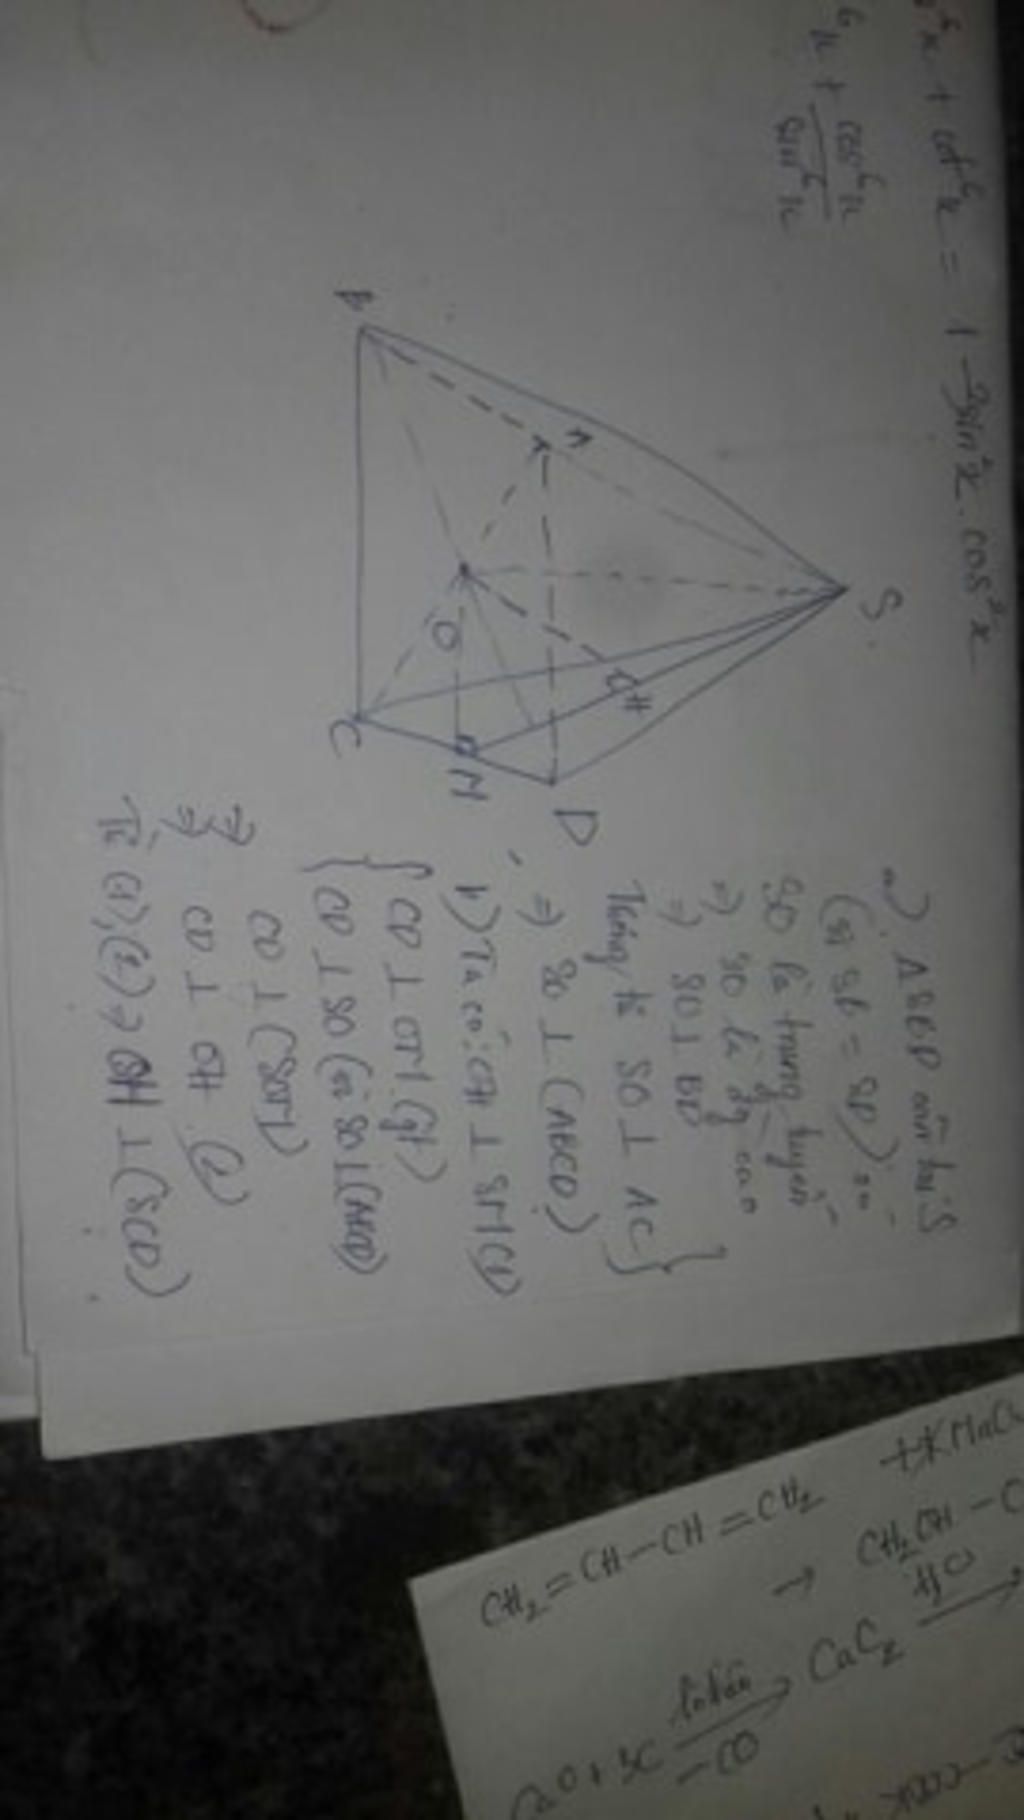 + cot⁶x = 1 - 3sin²x.cos²x
+ cos⁶x
sin⁶x
S
A
B
O
H
D
M
C
a) ΔSBD cân tại S
(vì SB = SD)
SO là trung tuyến
=> SO là đg cao
=> SO ⊥ BD
Tương tự SO ⊥ AC }
=> SO ⊥ (ABCD)
b) Ta có: OH ⊥ SM (1)
{ CD ⊥ OM (gt)
{ CD ⊥ SO (vì SO ⊥ (ABCD))
=> CD ⊥ (SOM)
=> CD ⊥ OH (2)
Từ (1), (2) => OH ⊥ (SCD)
+ KMnO₄
CH₂=CH-CH=CH₂
→ CH₂CH - C
CaO + 3C lò điện → CaC₂ H₂O →
- CO